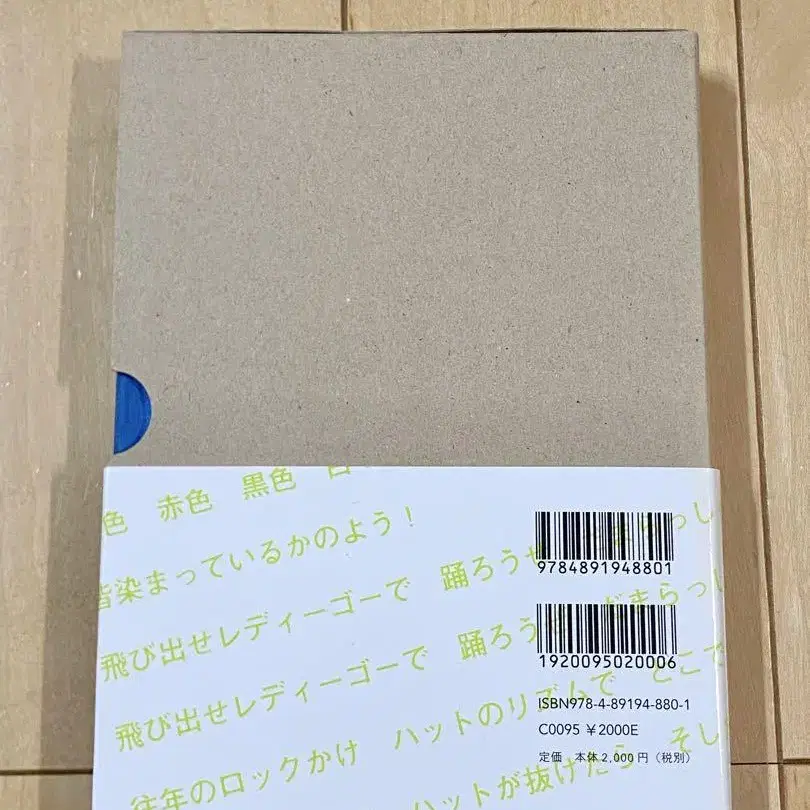 色 赤色 黒色 白
皆染まっているかのよう！
飛び出せレディーゴーで 踊ろうぜ だまらっし
飛び出せレディーゴーで 踊ろうぜ だまらっし
往年のロックかけ ハットのリズムで どこで
ハットが抜けたら そし
9784891948801
1920095020006
ISBN978-4-89194-880-1
C0095 ¥2000E
定価 本体2,000円（税別）